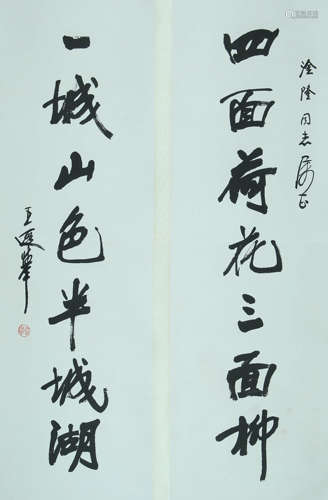 四面荷花三面柳
一城山色半城湖
同志
王遐举